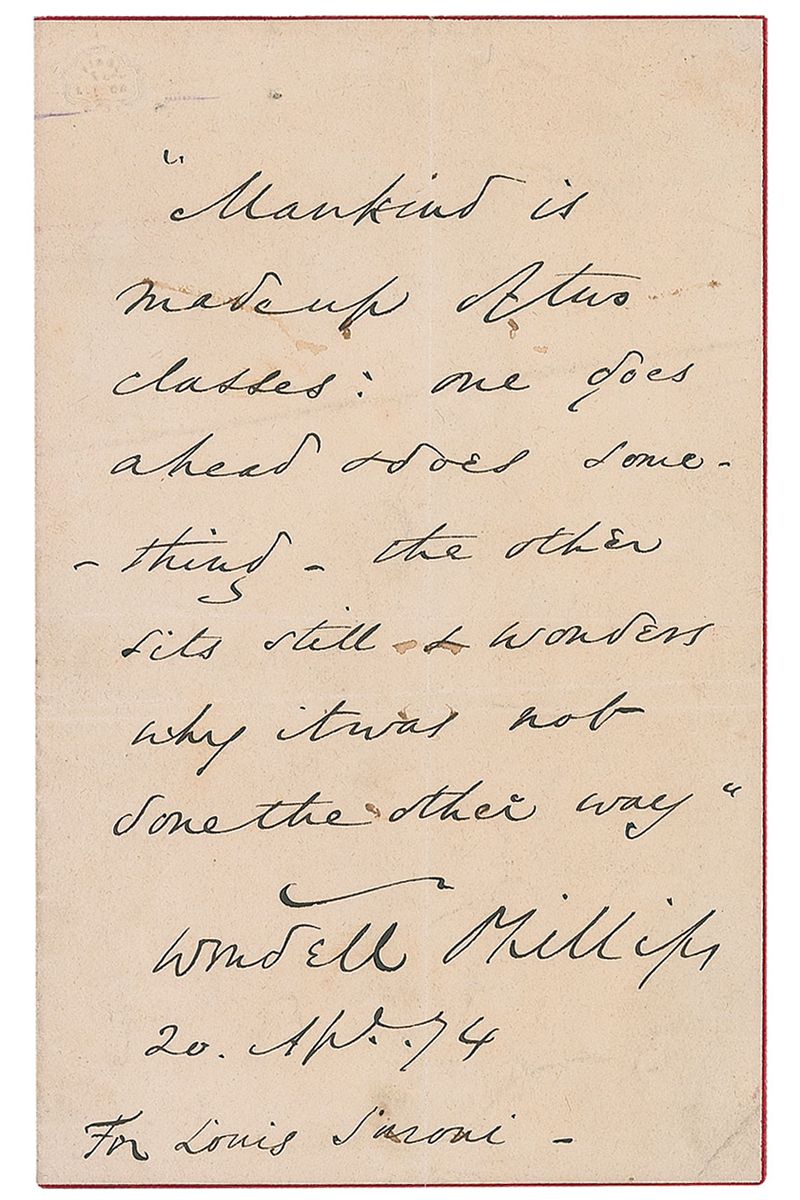 "Mankind is
made up of two
classes: one goes
ahead & does some-
- thing - the other
sits still & wonders
why it was not
done the other way"
Wendell Phillips
20. Apl. .74
For Louis